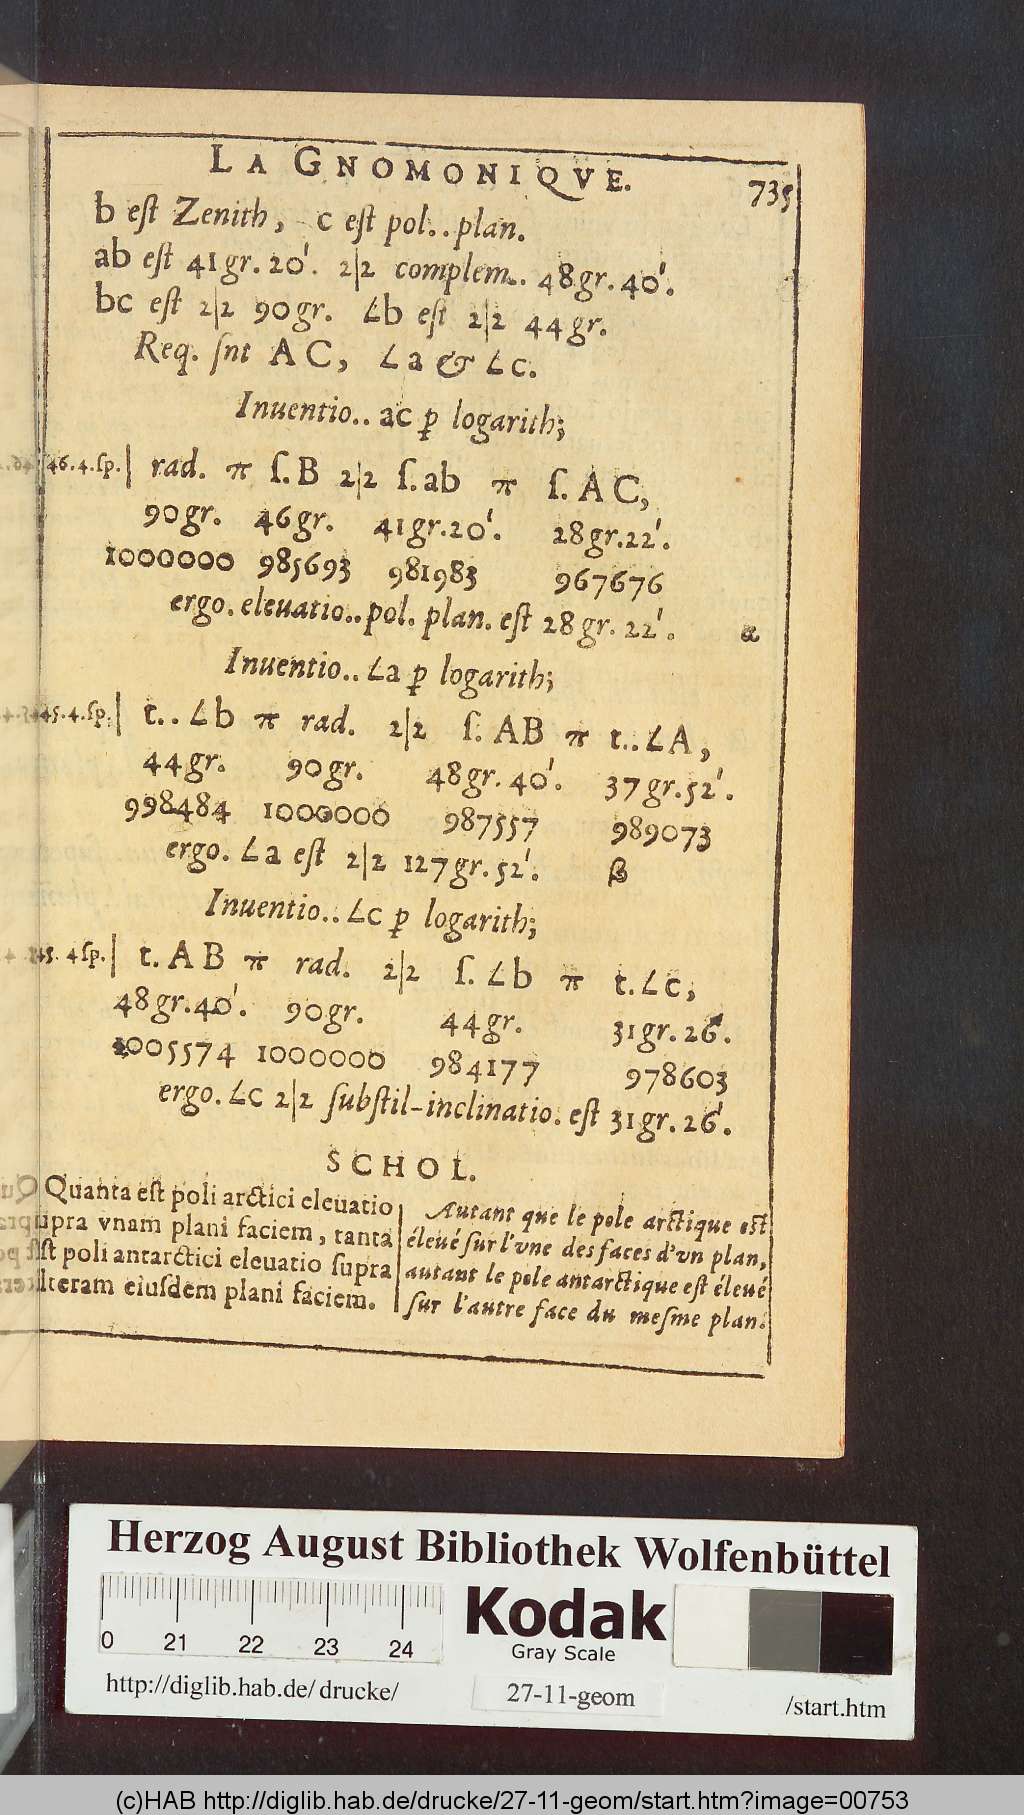 LA GNOMONIQVE. 735
b eſt Zenith, c eſt pol..plan.
ab eſt 41gr.20'. 2|2 complem.. 48gr.40'.
bc eſt 2|2 90gr. ∠b eſt 2|2 44gr.
Req. ſnt AC, ∠a & ∠c.
Inuentio..ac ꝑ logarith;
46.4.ſp.| rad. π ſ.B 2|2 ſ.ab π ſ.AC,
90gr. 46gr. 41gr.20'. 28gr.22'.
1000000 985693 981983 967676
ergo.eleuatio..pol.plan.eſt 28gr.22'. α
Inuentio..∠a ꝑ logarith;
45.4.ſp.| t..∠b π rad. 2|2 ſ.AB π t..∠A,
44gr. 90gr. 48gr.40'. 37gr.52'.
998484 1000000 987557 989073
ergo.∠a eſt 2|2 127gr.52'. β
Inuentio..∠c ꝑ logarith;
45.4ſp.| t.AB π rad. 2|2 ſ.∠b π t.∠c,
48gr.40'. 90gr. 44gr. 31gr.26'.
1005574 1000000 984177 978603
ergo.∠c 2|2 ſubſtil-inclinatio.eſt 31gr.26'.
SCHOL.
Quanta eſt poli arctici eleuatio
ſupra vnam plani faciem, tanta
eſt poli antarctici eleuatio ſupra
alteram eiuſdem plani faciem.
Autant que le pole arctique eſt
éleué ſur l'vne des faces d'vn plan,
autant le pole antarctique eſt éleué
ſur l'autre face du meſme plan.
Herzog August Bibliothek Wolfenbüttel
0 21 22 23 24
Kodak
Gray Scale
http://diglib.hab.de/drucke/ 27-11-geom /start.htm
(c)HAB http://diglib.hab.de/drucke/27-11-geom/start.htm?image=00753